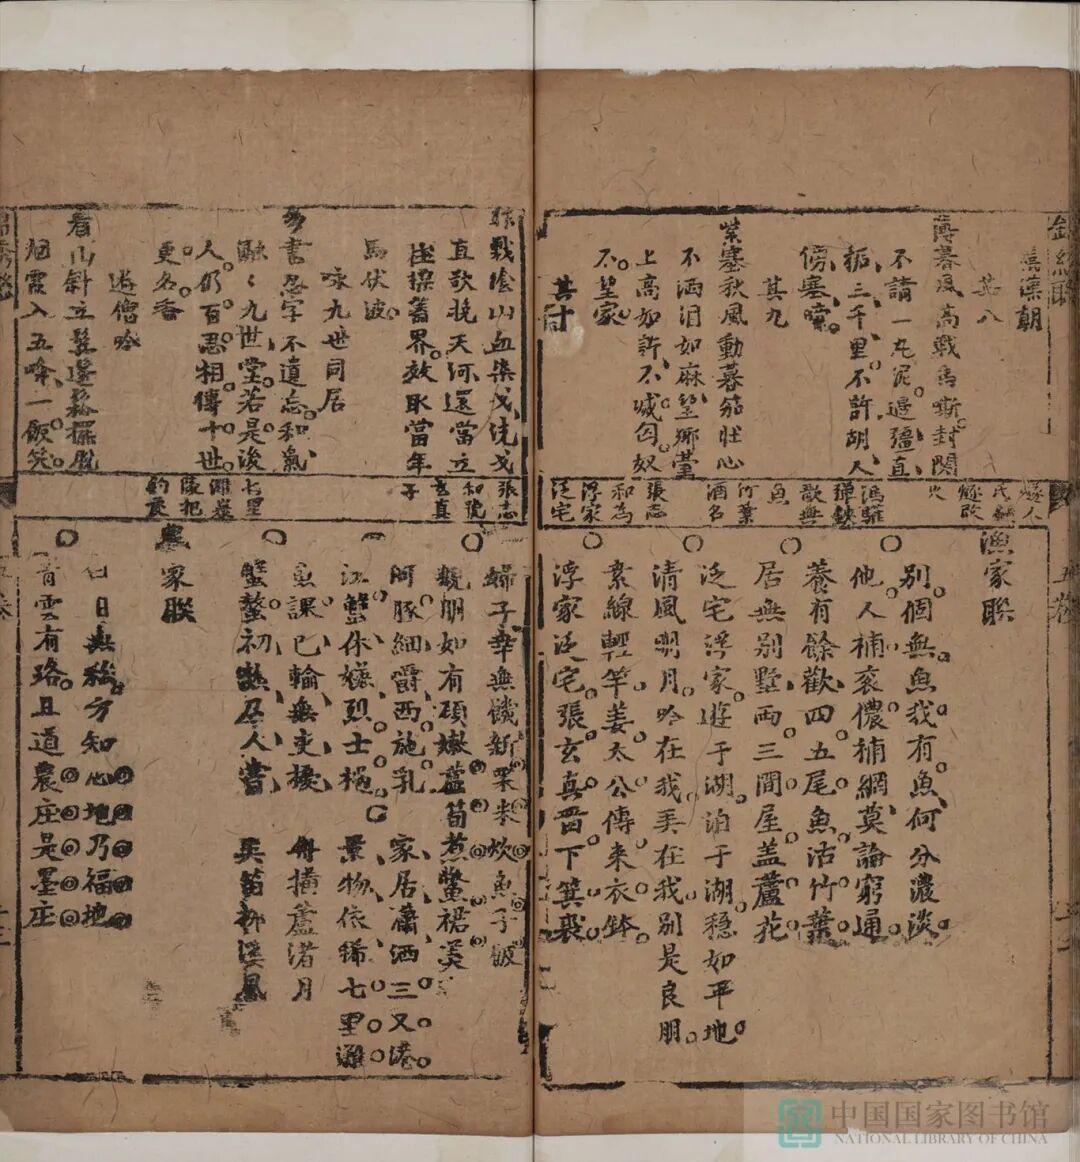 漢朝
其八
薄暮風高戰馬嘶封關
不請一丸泥邊疆直
拓三千里不許胡人
傍塞啼
其九
紫塞秋風動暮笳壯心
不洒泪如麻望鄉臺
上高如許不滅匈奴
不望家
其十
燧人
氏
燧改
火
馮驩
彈鋏
歌無
魚
竹葉
酒名
張志
和為
浮家
泛宅
漁家聯
別個無魚我有魚何分濃淡
他人補衮儂補網莫論窮通
養有餘歡四五尾魚沽竹葉
居無別墅兩三間屋盖蘆花
泛宅浮家遊于湖泊于湖穩如平地
清風明月吟在我弄在我別是良朋
素線輕竿姜太公傳来衣鉢
浮家泛宅張玄真晋下箕裘
五卷
酣戰陰山血染戈洗戈
直欲挽天河還當立
柱標舊界效取當年
馬伏波
咏九世同居
多書忍字不遺忘和氣
融々九世堂若是後
人仍百忍相傳十世
更名香
遊僧吟
看山斜立髮邊松擺脫
烟霞入五峰一飯笑
張志
和號
玄真
子
七里
灘嚴
陵把
釣處
婦子幸無饑新罛米炊魚子飯
親朋如有碩嫩蘆筍煮鱉裙羹
河豚細爵西施乳
家居瀟洒三叉港
江蟹休嫌烈士橈
景物依稀七里灘
魚課已輸無吏擾
舟橫蘆渚月
蟹螯初熟及人嘗
笑笛柳溪風
農家聯
白日無愁方知心地乃福地
青雲有路且道農庄是墨庄
中国国家图书馆
NATIONAL LIBRARY OF CHINA